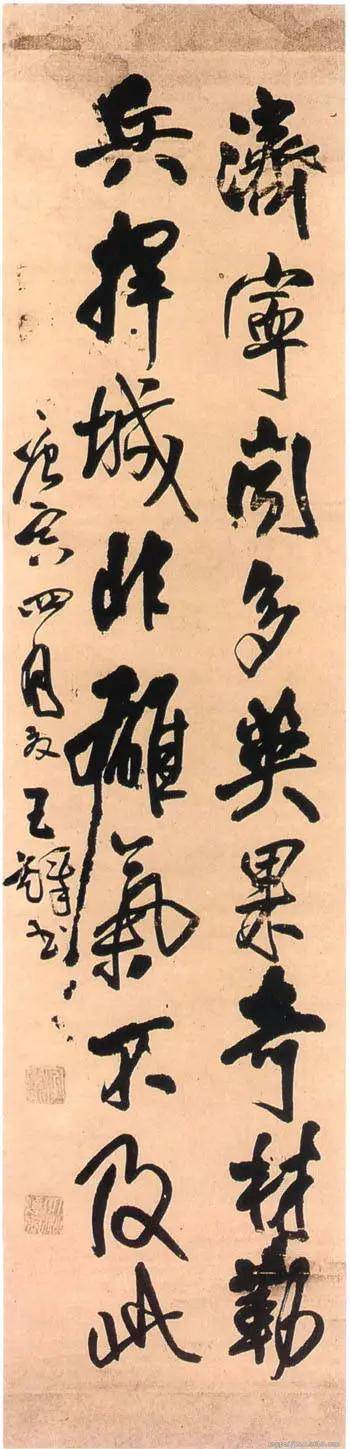 濟寧間多英果奇材勤
兵擇城非雄氣不及此
庚寅四月夜王鐸書